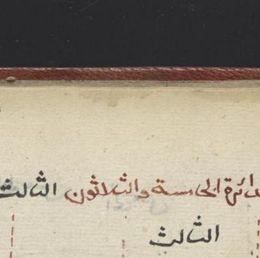 دائرة الخامسة والثلاثون الثالث
الثالث